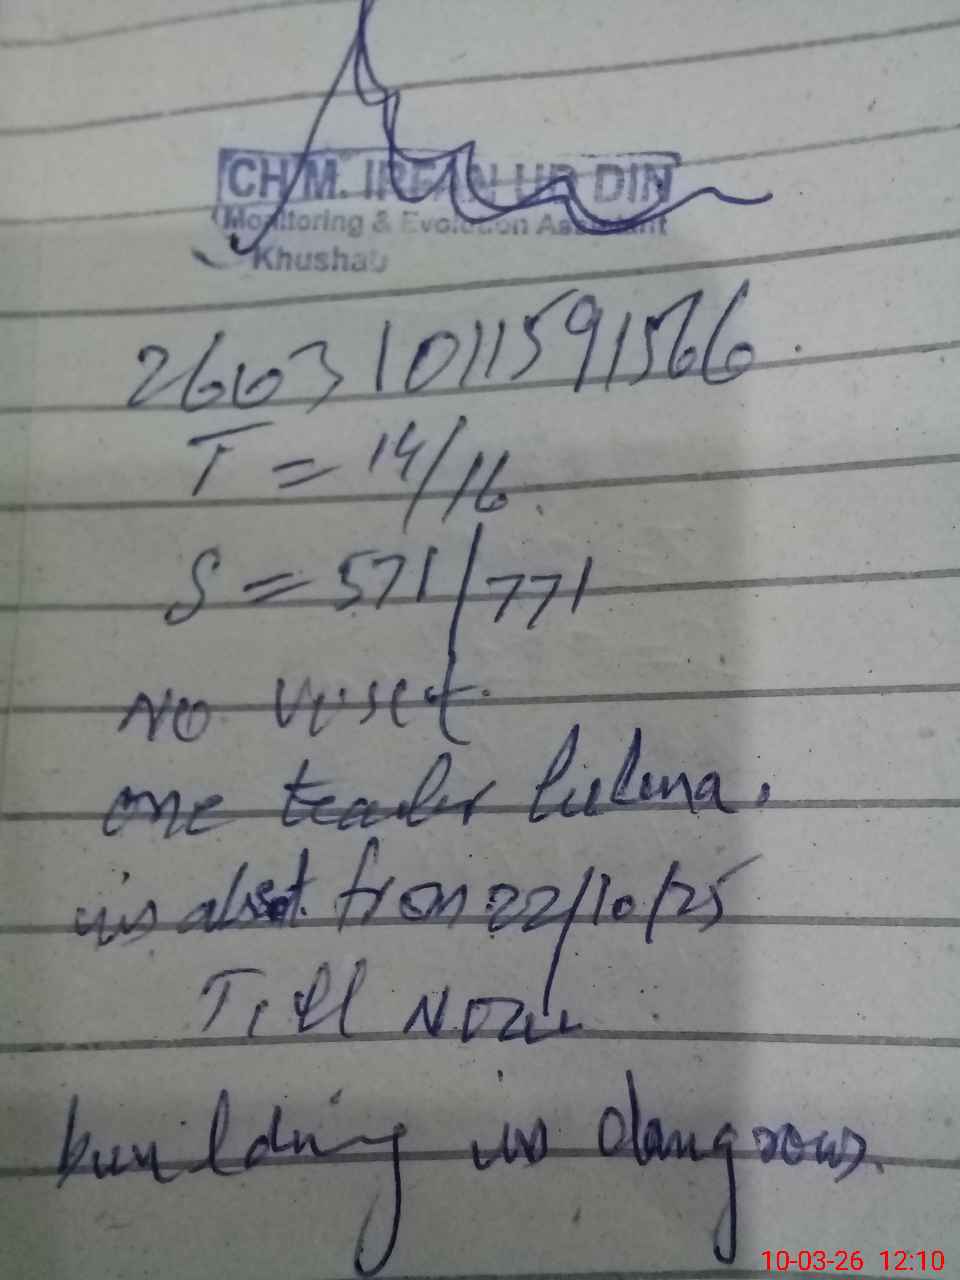 CH M. IRFAN UR DIN
Monitoring & Evolution Assistant
Khushab
26031011591566.
T = 14/16.
S = 571/771
NO viset.
one teacher
is absent from 22/10/25
Till Now
building is dangrous.
10-03-26 12:10